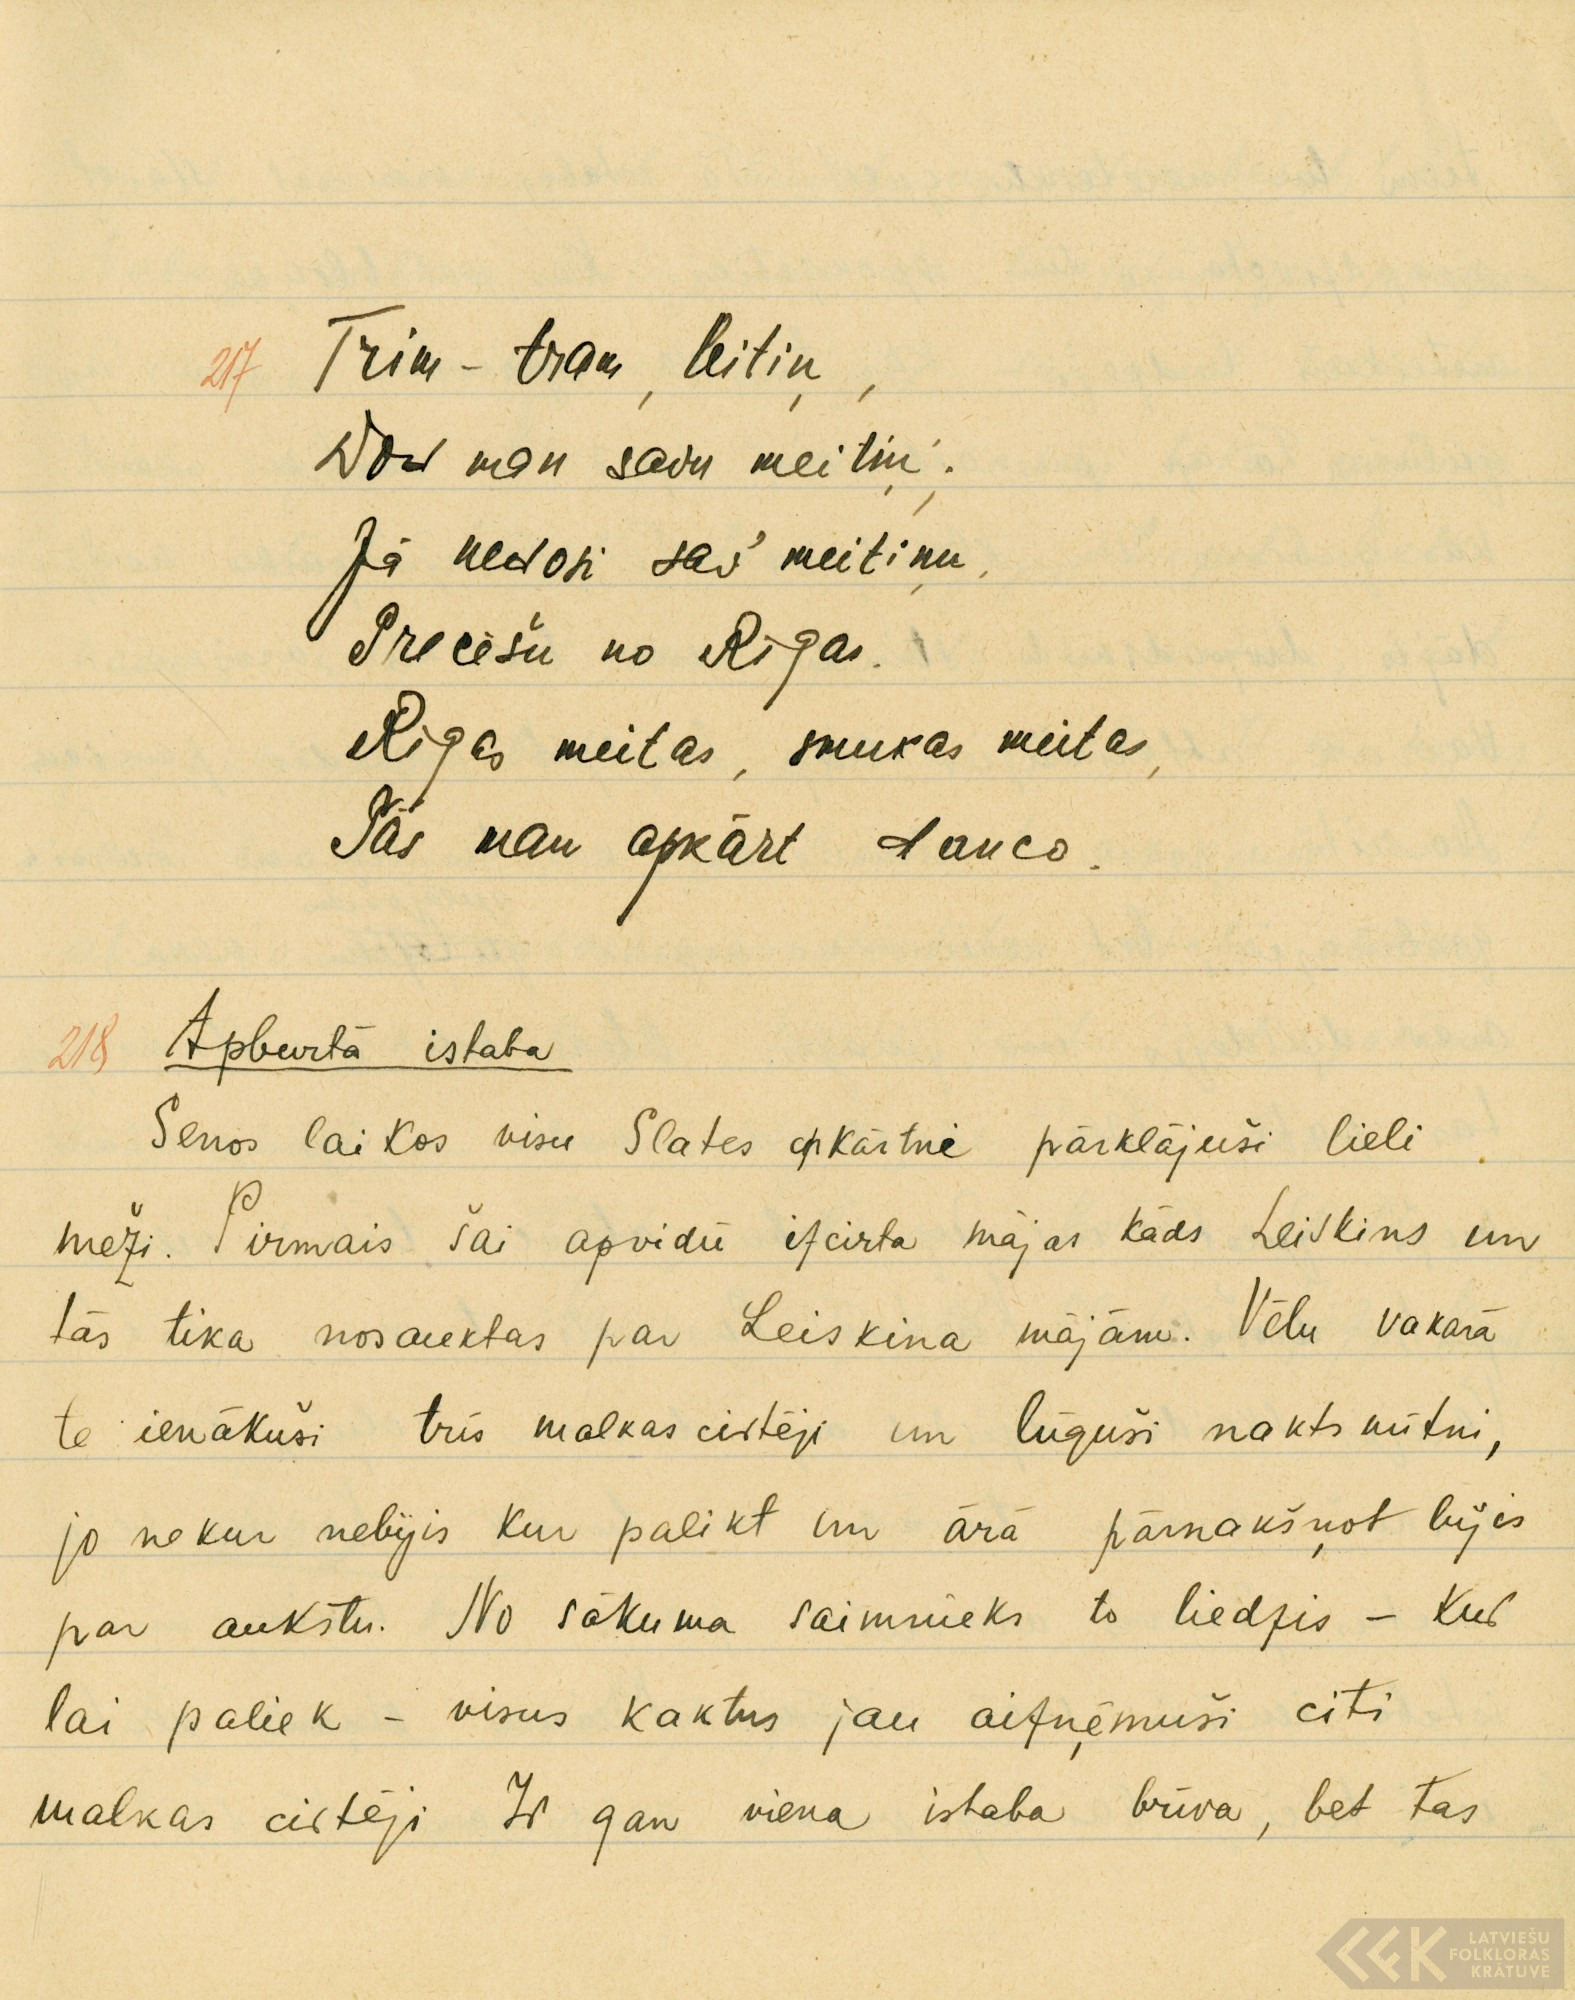 217 Trim - tram, leitiņ,
Dod man savu meitiņ'.
Jā nedosi sav' meitiņu,
Precēšu no Rīgas.
Rīgas meitas, smukas meitas,
Tās man apkārt danco.
218 Apburtā istaba
Senos laikos visu Slates apkārtni pārklājuši lieli
meži. Pirmais šai apvidū izcirta mājas kāds Leiskins un
tās tika nosauktas par Leiskina mājām. Vēlu vakarā
te ienākuši trīs malkas cirtēji un lūguši naktsmītni,
jo nekur nebijis kur palikt un ārā pārnakšņot bijis
par aukstu. No sākuma saimnieks to liedzis - kur
lai paliek - visus kaktus jau aizņēmuši citi
malkas cirtēji Ir gan viena istaba brīva, bet tas
LATVIEŠU
FOLKLORAS
KRĀTUVE